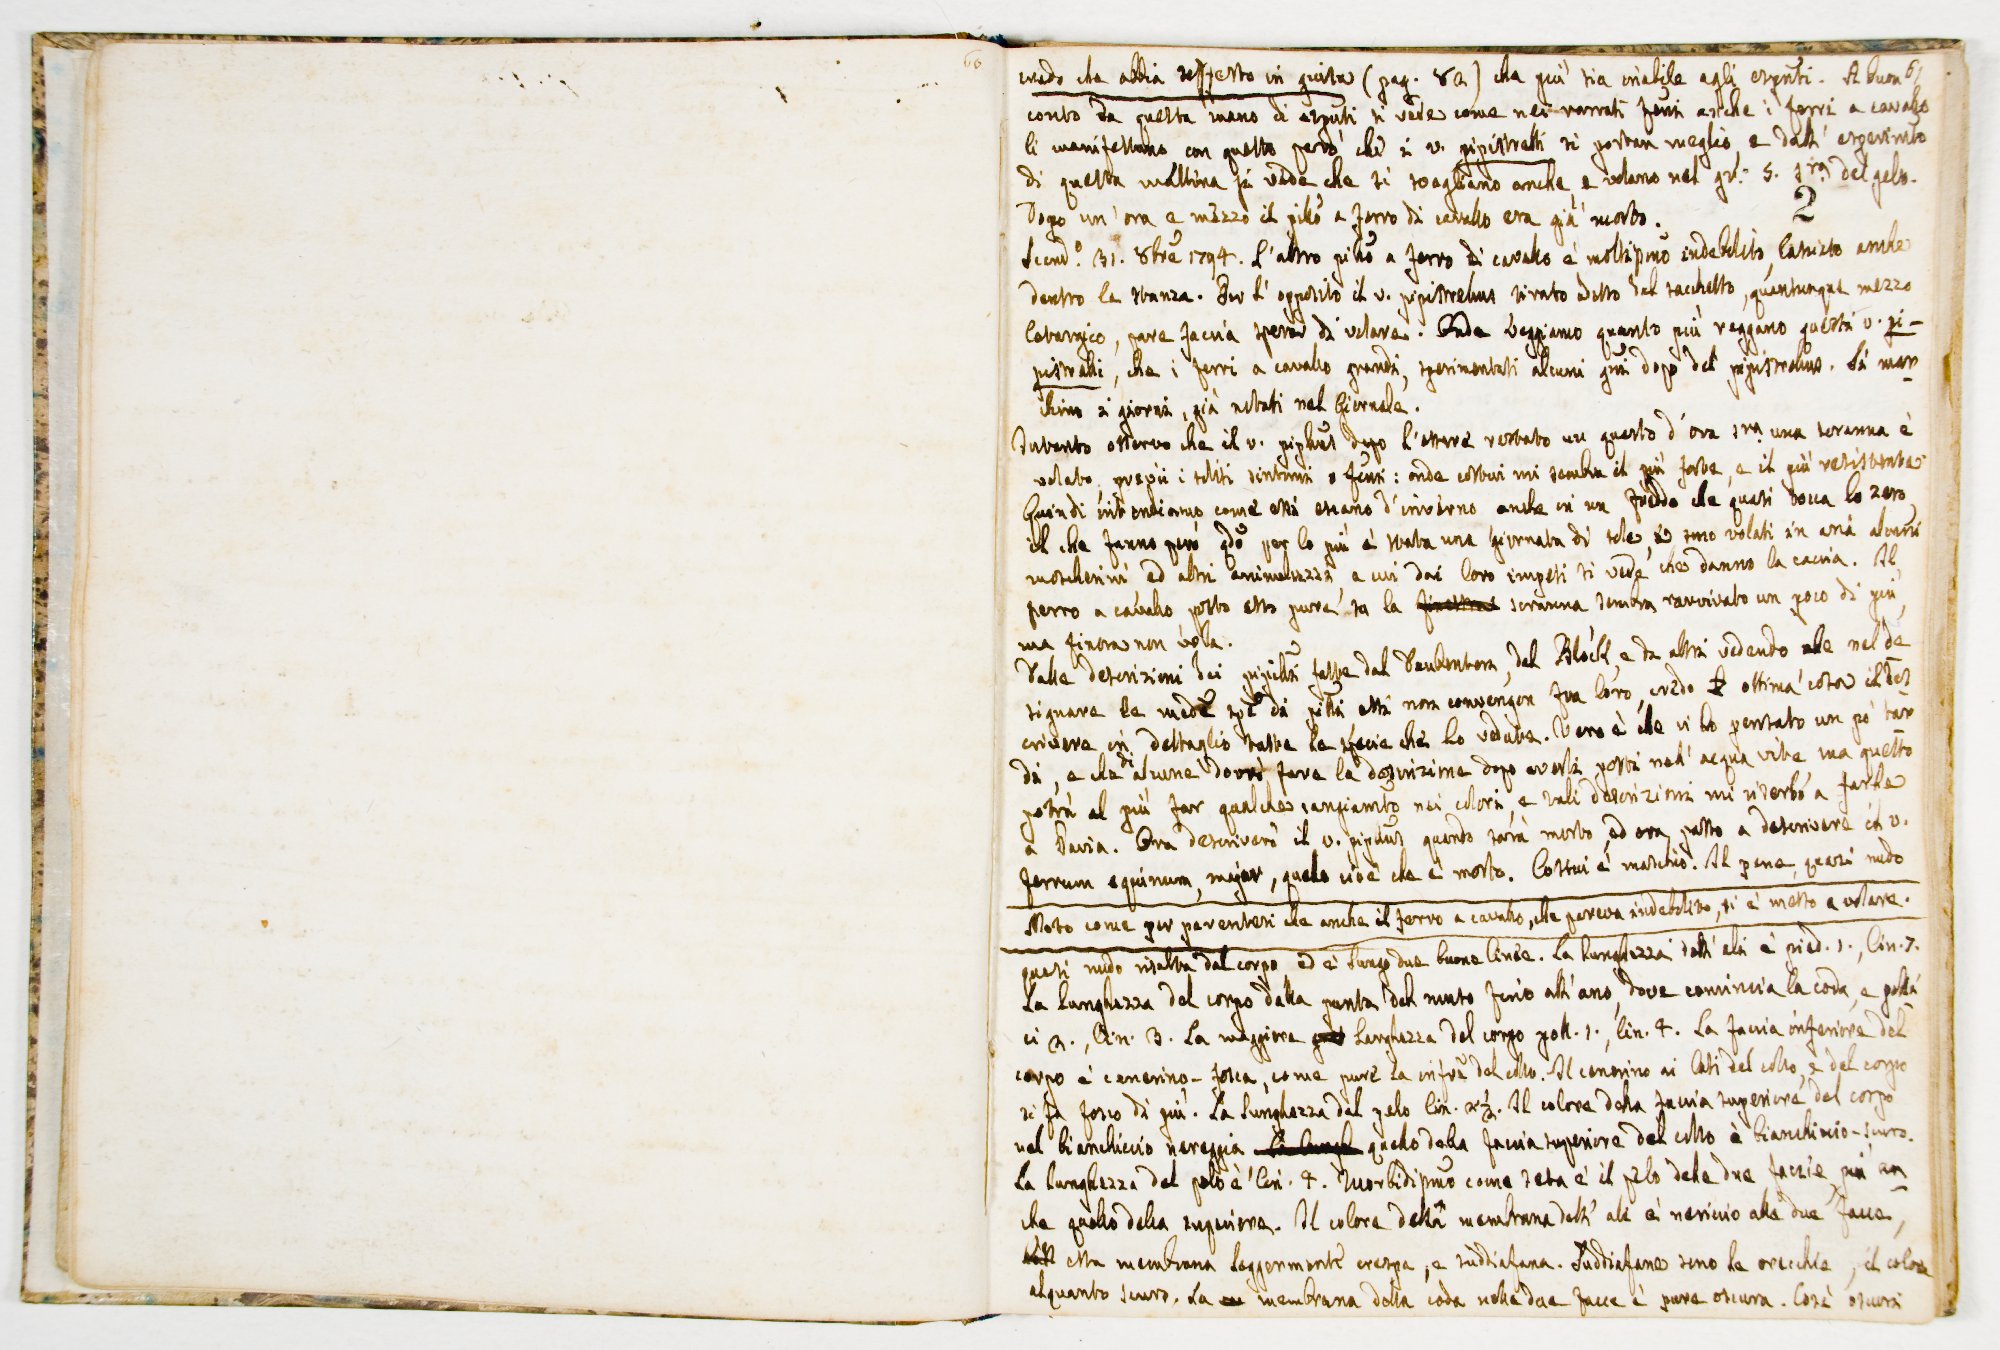 66
credo che abbia sofferto in guisa (pag. 82) che più sia inabile agli esputi. A buon 67
conto da questa mano di esputi si vede come nei narrati fenni anche i ferri a cavallo
li manifestano con questo però che i v. pipistrelli si portan meglio e dall' esperimto
di questa mattina si vede che si svegliano anche e volano nel gr. 5. sra del gelo.
2
Dopo un' ora e mezzo il pillo a ferro di cavallo era già morto.
31. 8bre 1794. L'altro pillo a ferro di cavallo è moltipmo indebolito, lasciato anche
dentro la stanza. Per l'opposito il v. pipistrellus tirato adesso dal sacchetto, quantunque mezzo
letargico, pare faccia sperar di volare. Onde veggiamo quanto più reggano questi v. pi-
pistrelli, che i ferri a cavallo grandi, sperimentati alcuni gni dopo del pipistrellus. Si mar
chino i giorni, già notati nel Giornale.
Intanto osservo che il v. piplus dopo l'essere restato un quarto d'ora sra una scranna è
volato, previi i soliti sintomi o fenni: onde costui mi sembra il più forte, e il più resistente.
Quindi intendiamo come essi escano d'inverno anche in un freddo che quasi tocca lo zero
il che fanno però qdo per lo più è stata una giornata di sole, e sono volati in aria alcuni
moscherini ed altri animaluzzi a cui dai loro impeti si vede che danno la caccia. Il
ferro a cavallo posto esso pure su la finestra scranna sembra ravvivato un poco di più,
ma finora non vola.
Dalle descrizioni dei pipilli fatte dal Daubenton, dal Block, e da altri vedendo che nel de
signare le medme spe di pilli essi non convengon fra loro, credo ottima cosa il des
crivere in dettaglio tutte le specie che ho vedute. Vero è che vi ho pensato un po' tar
di, e che di alcune dovrò fare la descrizione dopo averli posti nell' acqua vite ma questo
potrà al più far qualche cangiamto nei colori, e tali descrizioni mi riserbo a farle
a Pavia. Ora descriverò il v. piplus quando sarà morto, ed ora passo a descrivere il v.
ferrum equinum, major, quello cioè che è morto. Costui è maschio. Il pene, quasi nudo
Noto come per parentesi che anche il ferro a cavallo, che pareva indebolito, si è messo a volare.
quasi nudo risalta dal corpo, ed è lungo due buone linee. La lunghezza dell' ali è pied. 1., lin. 7.
La lunghezza del corpo dalla punta del muso fino all' ano, dove comincia la coda, e polli
ci 2., lin. 3. La maggiore larghezza del corpo poll. 1., lin. 4. La faccia inferiore del
corpo è cenerino-fosca, come pure la infra del collo. Il cenerino ai lati del collo, e del corpo
si fa fosco di più. La lunghezza del pelo lin. 2½. Il colore della faccia superiore del corpo
nel bianchiccio nereggia la lungh quello della faccia superiore del collo è bianchiccio-scuro.
La lunghezza del pelo è lin. 4. Morbidipmo come seta è il pelo delle due faccie, più an
che quello della superiore. Il colore della membrana dell' ali è nericcio alle due facce,
essa membrana leggermente crespa, e suddiafana. Suddiafane sono le orecchie, il colore
alquanto scuro. La membrana della coda nelle due facce è pure oscura. Così oscuri